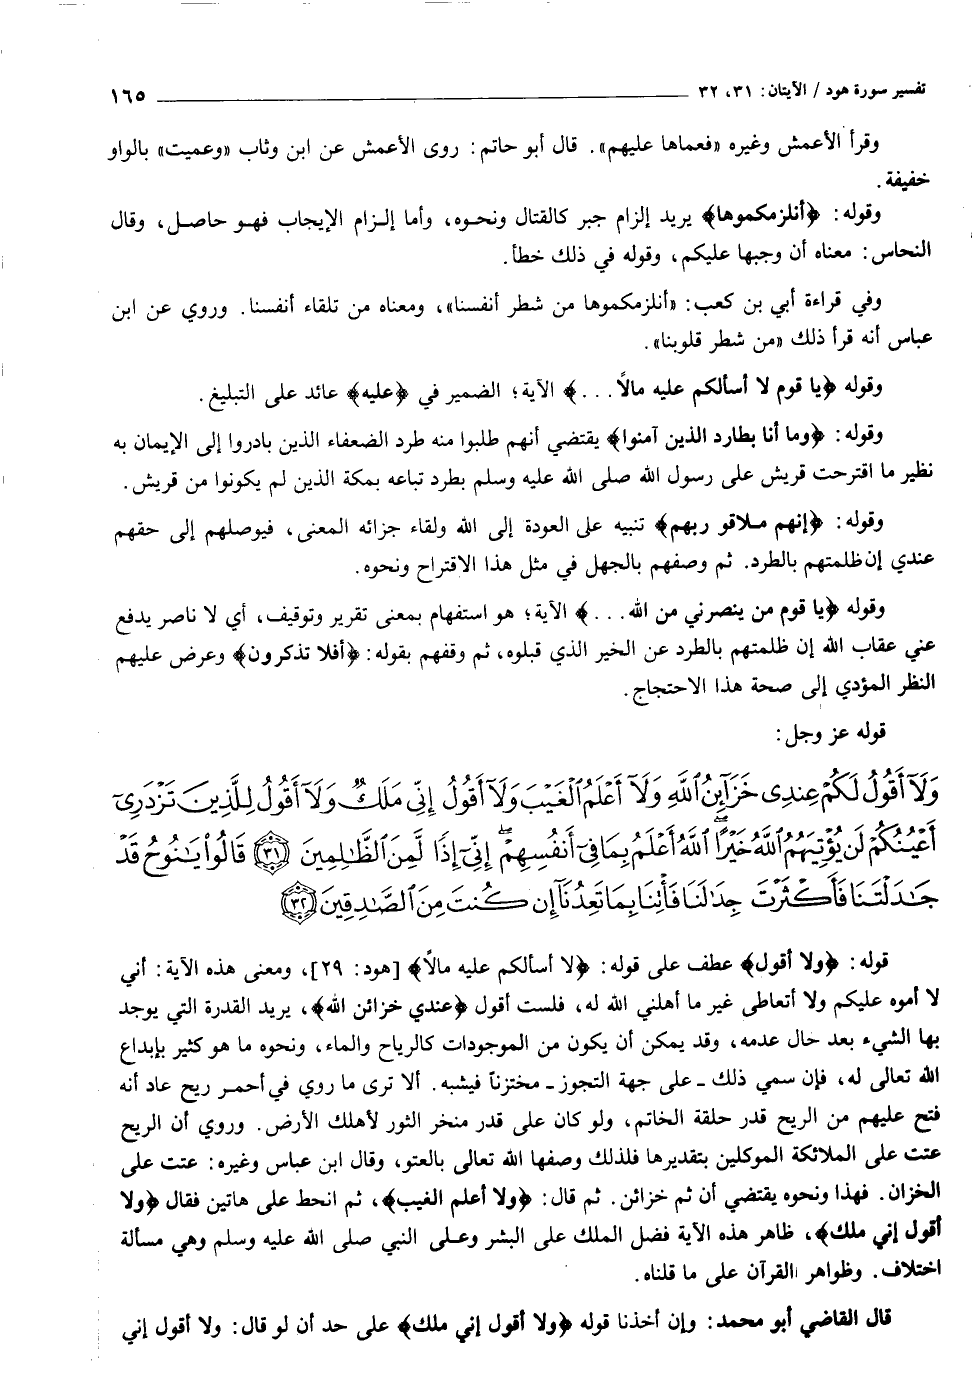 تفسير سورة هود / الآيتان: ٣١، ٣٢ ١٦٥
وقرأ الأعمش وغيره «فعماها عليهم». قال أبو حاتم: روى الأعمش عن ابن وثاب «وعميت» بالواو
خفيفة.
وقوله: ﴿أنلزمكموها﴾ يريد إلزام جبر كالقتال ونحوه، وأما إلزام الإيجاب فهو حاصل، وقال
النحاس: معناه أن وجبها عليكم، وقوله في ذلك خطأ.
وفي قراءة أبي بن كعب: «أنلزمكموها من شطر أنفسنا»، ومعناه من تلقاء أنفسنا. وروي عن ابن
عباس أنه قرأ ذلك «من شطر قلوبنا».
وقوله ﴿يا قوم لا أسألكم عليه مالاً...﴾ الآية؛ الضمير في ﴿عليه﴾ عائد على التبليغ.
وقوله: ﴿وما أنا بطارد الذين آمنوا﴾ يقتضي أنهم طلبوا منه طرد الضعفاء الذين بادروا إلى الإيمان به
نظير ما اقترحت قريش على رسول الله صلى الله عليه وسلم بطرد تباعه بمكة الذين لم يكونوا من قريش.
وقوله: ﴿إنهم ملاقو ربهم﴾ تنبيه على العودة إلى الله ولقاء جزائه المعنى، فيوصلهم إلى حقهم
عندي إن ظلمتهم بالطرد. ثم وصفهم بالجهل في مثل هذا الاقتراح ونحوه.
وقوله ﴿يا قوم من ينصرني من الله...﴾ الآية؛ هو استفهام بمعنى تقرير وتوقيف، أي لا ناصر يدفع
عني عقاب الله إن ظلمتهم بالطرد عن الخير الذي قبلوه، ثم وقفهم بقوله: ﴿أفلا تذكرون﴾ وعرض عليهم
النظر المؤدي إلى صحة هذا الاحتجاج.
قوله عز وجل:
وَلَآ أَقُولُ لَكُمْ عِندِى خَزَآئِنُ ٱللَّهِ وَلَآ أَعْلَمُ ٱلْغَيْبَ وَلَآ أَقُولُ إِنِّى مَلَكٌ وَلَآ أَقُولُ لِلَّذِينَ تَزْدَرِىٓ
أَعْيُنُكُمْ لَن يُؤْتِيَهُمُ ٱللَّهُ خَيْرًا ۖ ٱللَّهُ أَعْلَمُ بِمَا فِىٓ أَنفُسِهِمْ ۖ إِنِّىٓ إِذًا لَّمِنَ ٱلظَّٰلِمِينَ ٣١ قَالُوا۟ يَٰنُوحُ قَدْ
جَٰدَلْتَنَا فَأَكْثَرْتَ جِدَٰلَنَا فَأْتِنَا بِمَا تَعِدُنَآ إِن كُنتَ مِنَ ٱلصَّٰدِقِينَ ٣٢
قوله: ﴿ولا أقول﴾ عطف على قوله: ﴿لا أسألكم عليه مالاً﴾ [هود: ٢٩]، ومعنى هذه الآية: أني
لا أموه عليكم ولا أتعاطى غير ما أهلني الله له، فلست أقول ﴿عندي خزائن الله﴾، يريد القدرة التي يوجد
بها الشيء بعد حال عدمه، وقد يمكن أن يكون من الموجودات كالرياح والماء، ونحوه ما هو كثير بإبداع
الله تعالى له، فإن سمي ذلك ـ على جهة التجوز ـ مختزناً فيشبه. ألا ترى ما روي في أحمر ريح عاد أنه
فتح عليهم من الريح قدر حلقة الخاتم، ولو كان على قدر منخر الثور لأهلك الأرض. وروي أن الريح
عتت على الملائكة الموكلين بتقديرها فلذلك وصفها الله تعالى بالعتو، وقال ابن عباس وغيره: عتت على
الخزان. فهذا ونحوه يقتضي أن ثم خزائن. ثم قال: ﴿ولا أعلم الغيب﴾، ثم انحط على هاتين فقال ﴿ولا
أقول إني ملك﴾، ظاهر هذه الآية فضل الملك على البشر وعلى النبي صلى الله عليه وسلم وهي مسألة
اختلاف. وظواهر القرآن على ما قلناه.
قال القاضي أبو محمد: وإن أخذنا قوله ﴿ولا أقول إني ملك﴾ على حد أن لو قال: ولا أقول إني